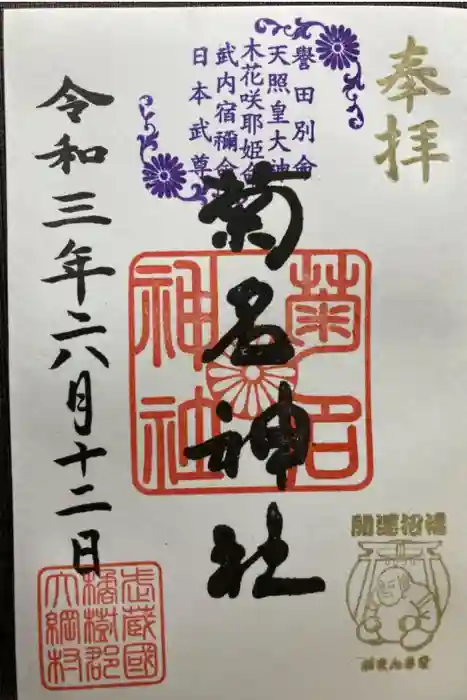 奉拝
譽田別命
天照皇大神
木花咲耶姫命
武内宿禰命
日本武尊
菊名神社
菊名
神社
令和三年六月十二日
武蔵國
橘樹郡
大綱村
開運招福